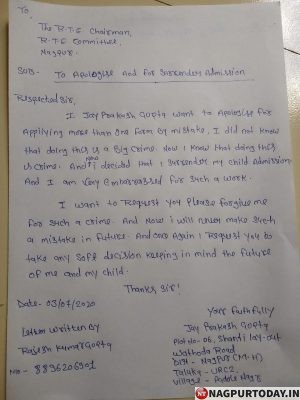 To,
The R.T.E Chairman,
R.T.E Committee,
Nagpur.
Sub- To Apologise And for Surrender Admission
Respected Sir,
I Jay Prakash Gupta want to Apologise for
Applying more than one form by mistake, I did not know
that doing this is a Big crime. Now I know that doing this
is crime. And Now i decided that I surrender my child Admission
And I am very Embarrassed for such a work.
I want to Request you Please forgive me
for such a crime. And Now i will never make such
a mistake in future. And once Again I Request you to
take any soft decision keeping in mind the future
of me and my child.
Thanks Sir!
Date- 03/07/2020
Your faithfully
Letter written By
Jay Prakash Gupta
Rajesh Kumar Gupta
Plot No- 06, Shanti lay-out
Wathoda Road
No- 8896206901
Dist- Nagpur (M.H)
Taluka -
Village -
NT NAGPURTODAY.IN